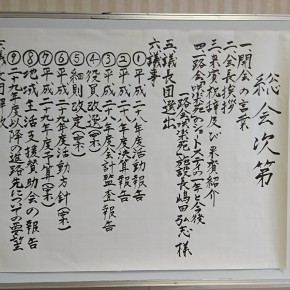 総会次第
一 開会の言葉
二 会長挨拶
三 来賓祝辞及び来賓紹介
四 一路会ショートステイの
施設長嶋田弘志様
五 議長団選出
六 議事
①平成二八年度活動報告
②平成二八年度決算報告
③平成二八年度会計監査報告
④役員改選(案)
⑤細則改定(案)
⑥平成二九年度活動方針(案)
⑦平成二九年度予算(案)
⑧地域生活支援賛助会の報告
⑨二九年度以降進路先についての要望